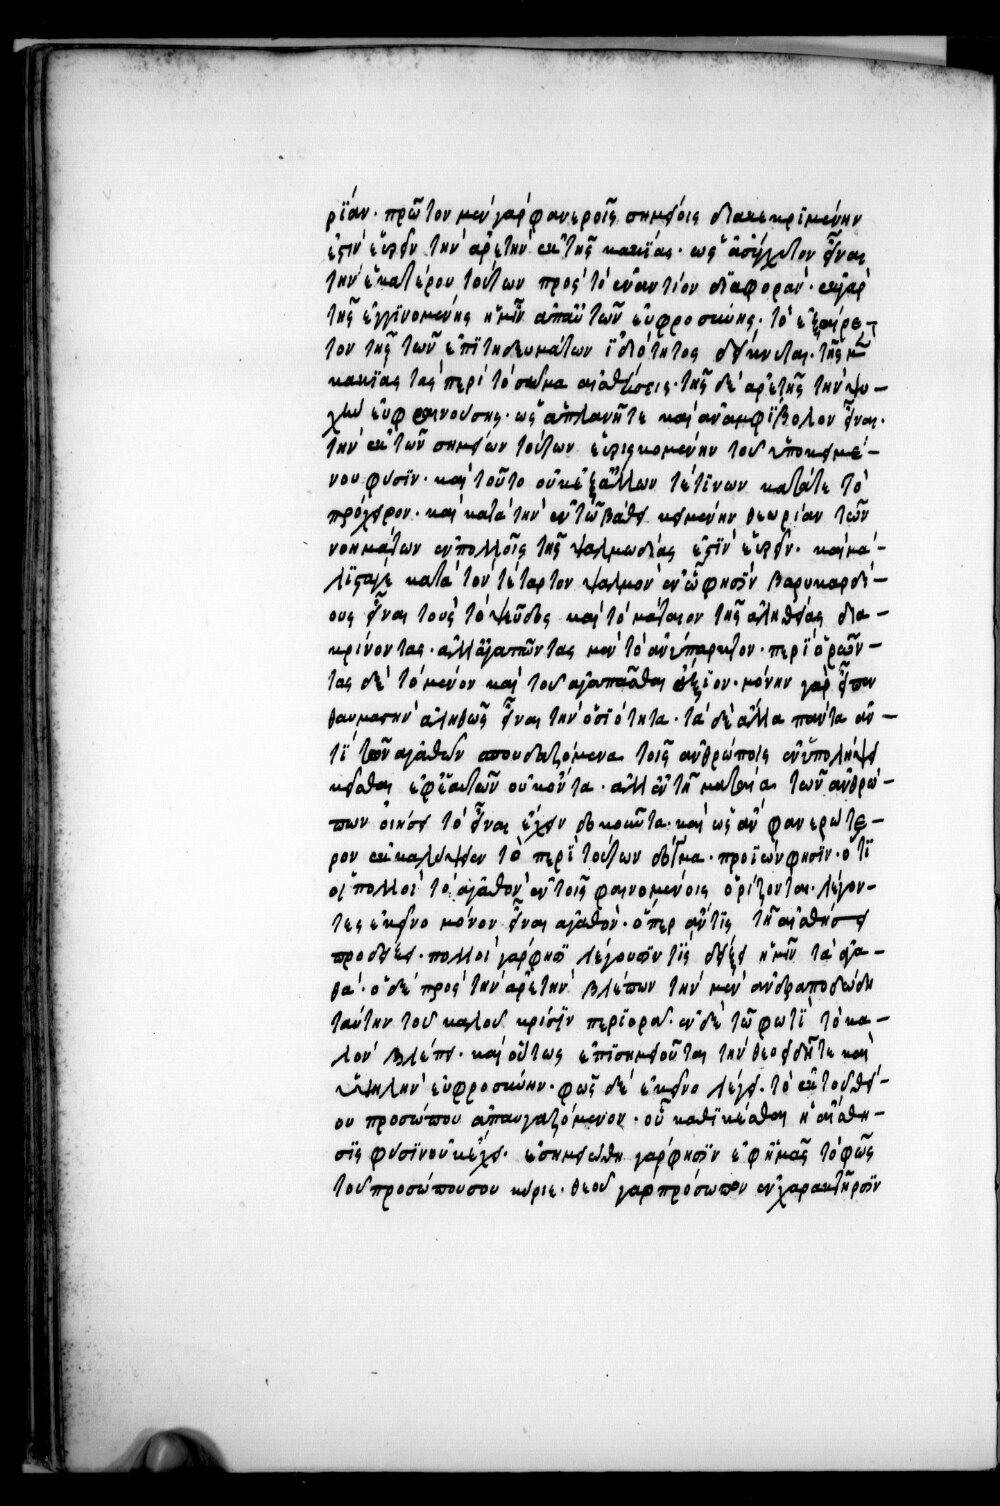 ρϊαν· πρῶτον μὲν γὰρ φανεροῖς σημείοις διακεκριμένην
ἐστὶν εὑρεῖν τὴν ἀρετὴν ἐκ τῆς κακίας· ὡς ἀσύγχυτον εἶναι
τὴν ἑκατέρου τούτων πρὸς τὸ ἐναντίον διαφοράν· ἐκ γὰρ
τῆς ἐγγινομένης ἡμῖν ἀπ' αὐτῶν εὐφροσύνης· τὸ ἐξαίρε-
τον τῆς τῶν ἐπιτηδευμάτων ἰδιότητος δείκνυται· τῆς μὲν
κακίας τὰς περὶ τὸ σῶμα αἰσθήσεις· τῆς δὲ ἀρετῆς τὴν ψυ-
χὴν εὐφραινούσης· ὡς ἀπλανῆ τε καὶ ἀναμφίβολον εἶναι·
τὴν ἐκ τῶν σημείων τούτων εὑρισκομένην τοῦ ὑποκειμέ-
νου φύσιν· καὶ τοῦτο οὐκ ἐξ ἄλλων τέ τινων κατά τε τὸ
πρόχειρον· καὶ κατὰ τὴν ἐν τῷ βάθει κειμένην θεωρίαν τῶν
νοημάτων ἐν πολλοῖς τῆς ψαλμωδίας ἐστὶν εὑρεῖν· καὶ μά-
λιστά γε κατὰ τὸν τέταρτον ψαλμὸν ἐν ᾧ φησὶν βαρυκαρδί-
ους εἶναι τοὺς τὸ ψεῦδος καὶ τὸ μάταιον τῆς ἀληθείας δια-
κρίνοντας· ἀλλ' ἀγαπῶντας μὲν τὸ ἀνύπαρκτον· περιορῶν-
τας δὲ τὸ μένον καὶ τοῦ ἀγαπᾶσθαι ἄξιον· μόνην γὰρ εἶπεν
θαυμαστὴν ἀληθῶς εἶναι τὴν ὁσιότητα· τὰ δὲ ἄλλα πάντα ἀν-
τὶ τῶν ἀγαθῶν σπουδαζόμενα τοῖς ἀνθρώποις ἐν ὑπολήψει
κεῖσθαι ἐφ' ἑαυτῶν οὐκ ὄντα· ἀλλ' ἐν τῇ ματαίᾳ τῶν ἀνθρώ-
πων οἰήσει τὸ εἶναι ἔχειν δοκοῦντα· καὶ ὡς ἂν φανερώτε-
ρον ἐκκαλύψειεν τὸ περὶ τούτων δόγμα· προϊών φησιν· ὅτι
οἱ πολλοὶ τὸ ἀγαθὸν ἐν τοῖς φαινομένοις ὁρίζονται· λέγον-
τες ἐκεῖνο μόνον εἶναι ἀγαθόν· ὅπερ ἄν τις τῇ αἰσθήσει
προσδείξει· πολλοὶ γάρ φησι λέγουσιν τίς δείξει ἡμῖν τὰ ἀγα-
θά· ὁ δὲ πρὸς τὴν ἀρετὴν βλέπων τὴν μὲν ἀνδραποδώδη
ταύτην τοῦ καλοῦ κρίσιν περιορᾷ· ἐν δὲ τῷ φωτὶ τὸ κα-
λὸν βλέπει· καὶ οὕτως ἐπισημειοῦται τὴν θεοειδῆ τε καὶ
ὑψηλὴν εὐφροσύνην· φῶς δὲ ἐκεῖνο λέγει· τὸ ἐκ τοῦ θεί-
ου προσώπου ἀπαυγαζόμενον· οὗ καθικέσθαι ἡ αἴσθη-
σις φύσιν οὐκ ἔχει· ἐσημειώθη γάρ φησιν ἐφ' ἡμᾶς τὸ φῶς
τοῦ προσώπου σου κύριε· θεοῦ γὰρ πρόσωπον ἐν χαρακτῆρσιν